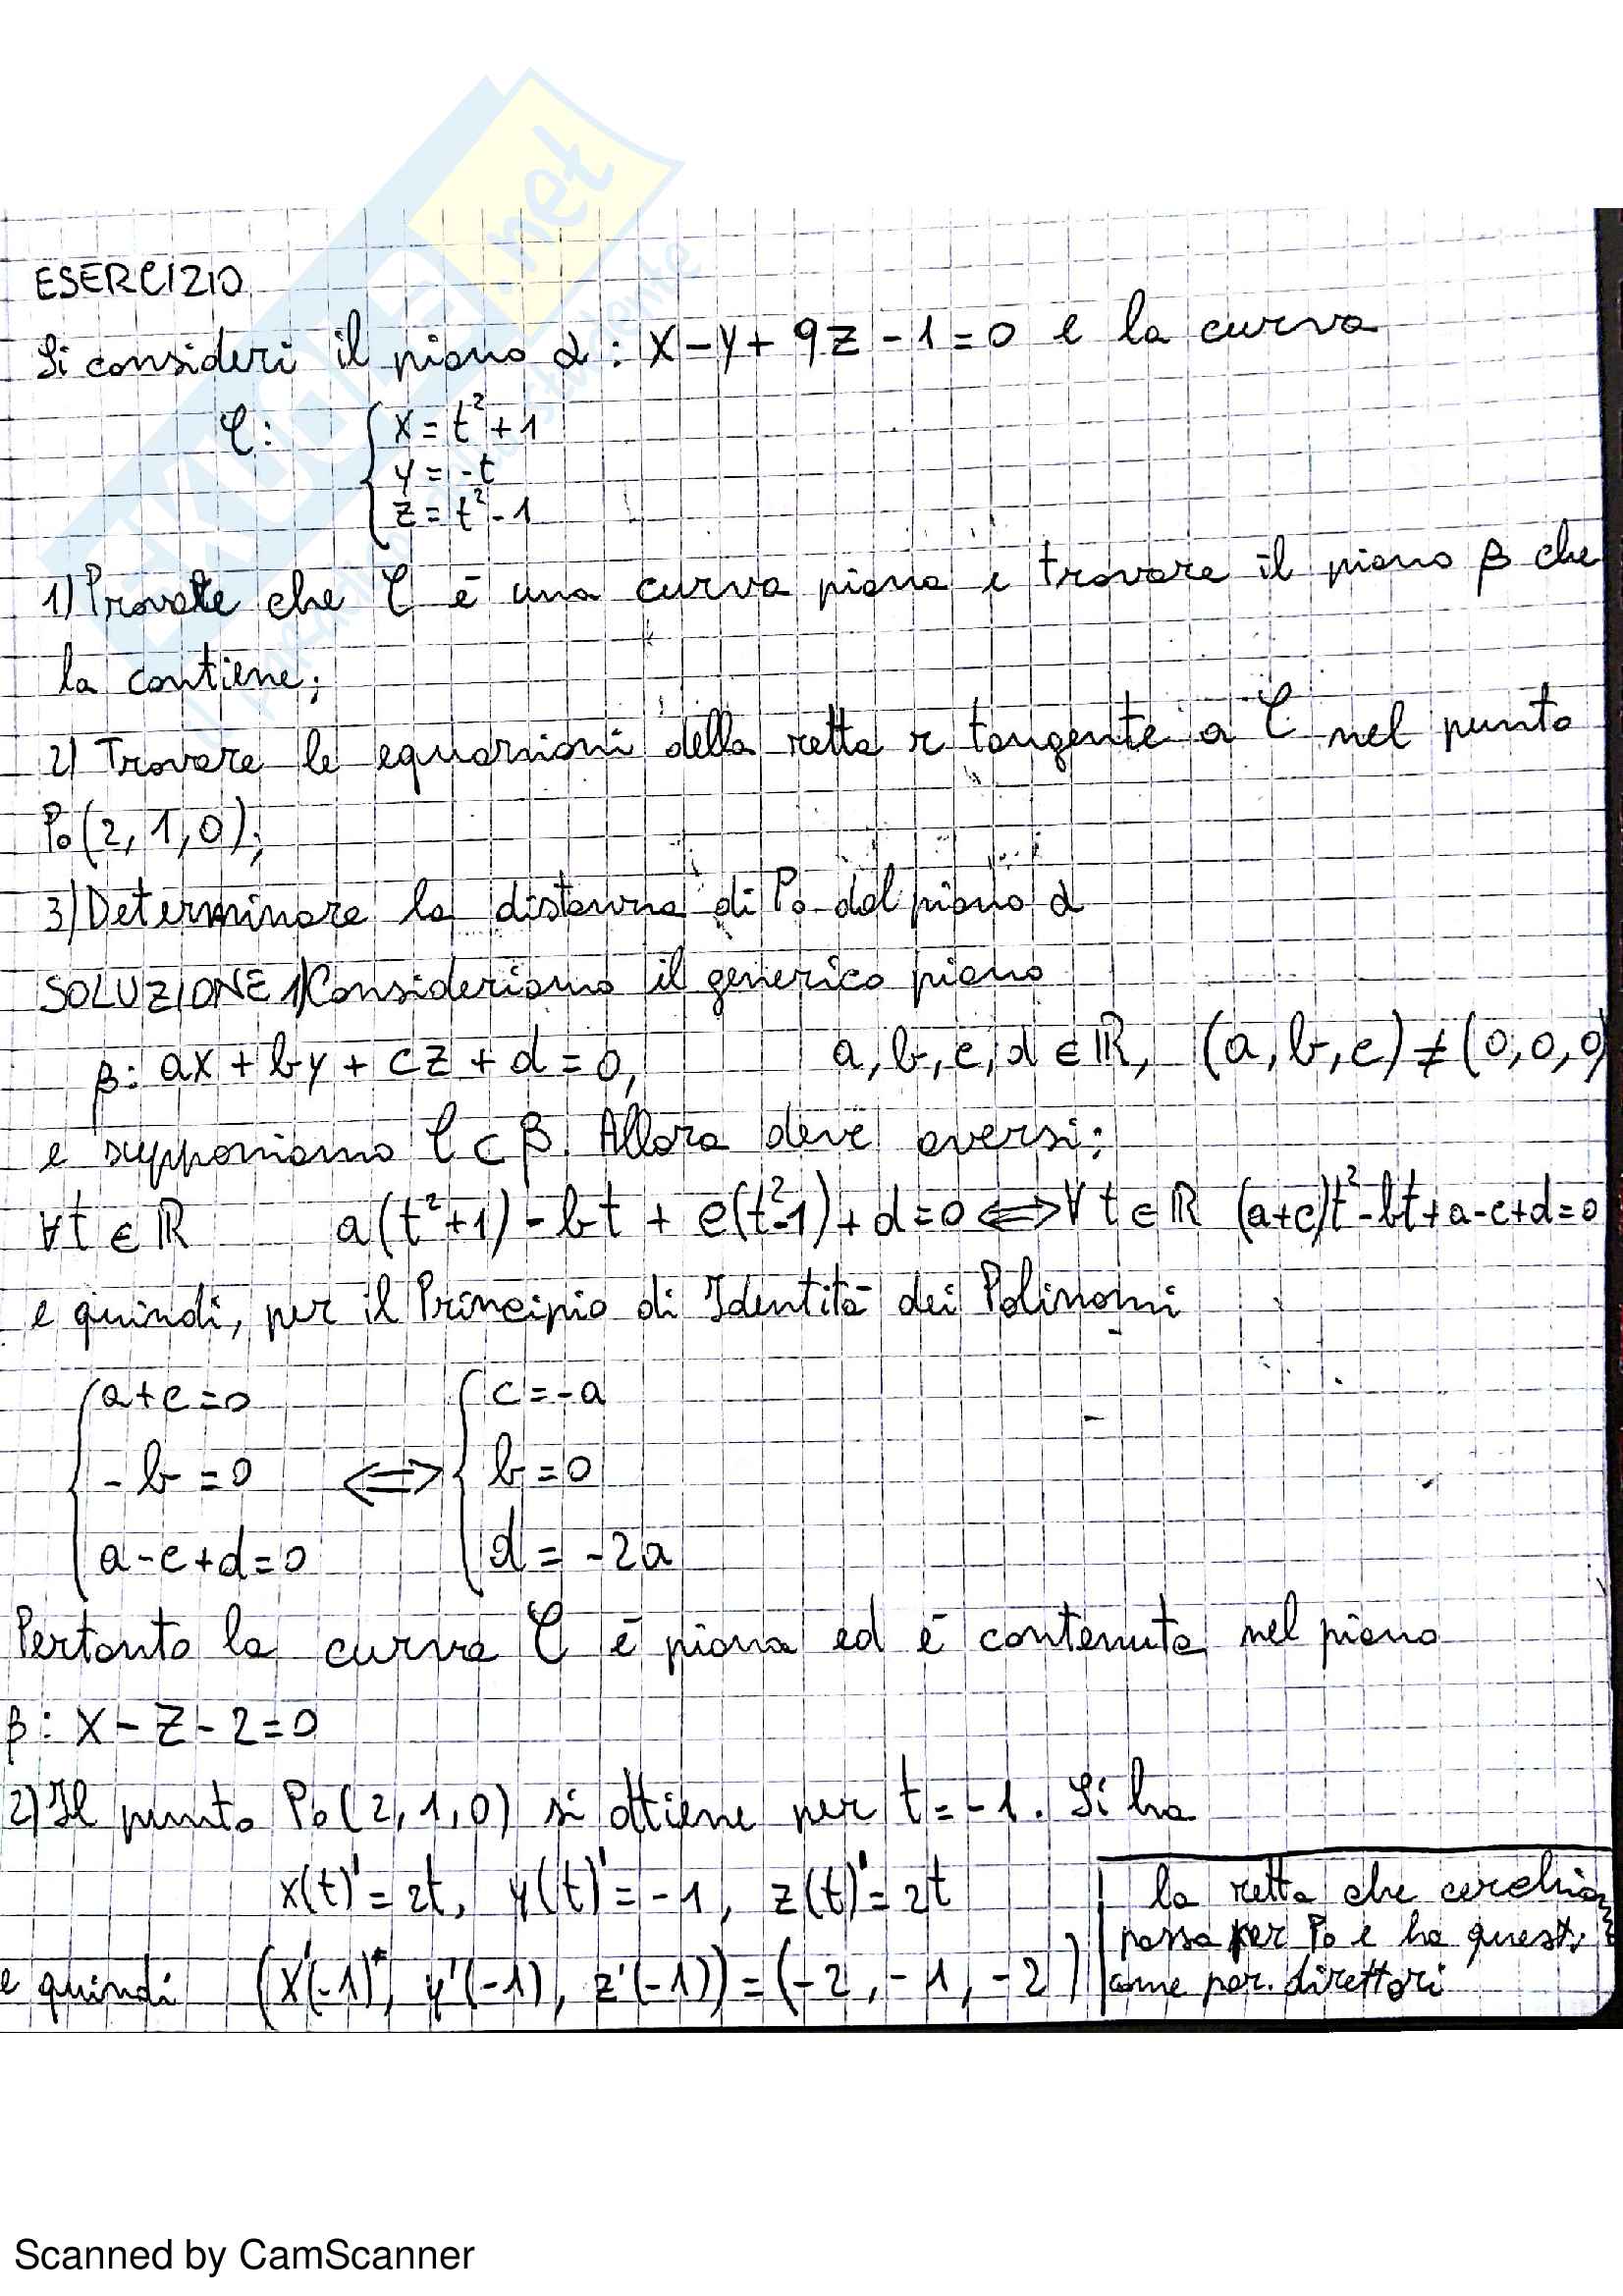 ESERCIZIO
Si consideri il piano α: x-y+9z-1=0 e la curva
C: { x=t²+1
y=-t
z=t²-1
1) Provate che C è una curva piana e trovare il piano β che
la contiene;
2) Trovare le equazioni della retta r tangente a C nel punto
P₀(2,1,0);
3) Determinare la distanza di P₀ dal piano α
SOLUZIONE 1) Consideriamo il generico piano
β: ax+by+cz+d=0, a,b,c,d∈ℝ, (a,b,c)≠(0,0,0)
e supponiamo C⊂β. Allora deve aversi:
∀t∈ℝ a(t²+1)-bt+c(t²-1)+d=0⟺∀t∈ℝ (a+c)t²-bt+a-c+d=0
e quindi, per il Principio di Identità dei Polinomi
{ a+c=0 { c=-a
-b=0 ⟺ b=0
a-c+d=0 d=-2a
Pertanto la curva C è piana ed è contenuta nel piano
β: x-z-2=0
2) Il punto P₀(2,1,0) si ottiene per t=-1. Si ha
x(t)'=2t, y(t)'=-1, z(t)'=2t
e quindi (x'(-1), y'(-1), z'(-1))=(-2,-1,-2)
la retta che cerchiamo
passa per P₀ e ha questi
come par. direttori
Scanned by CamScanner
.net